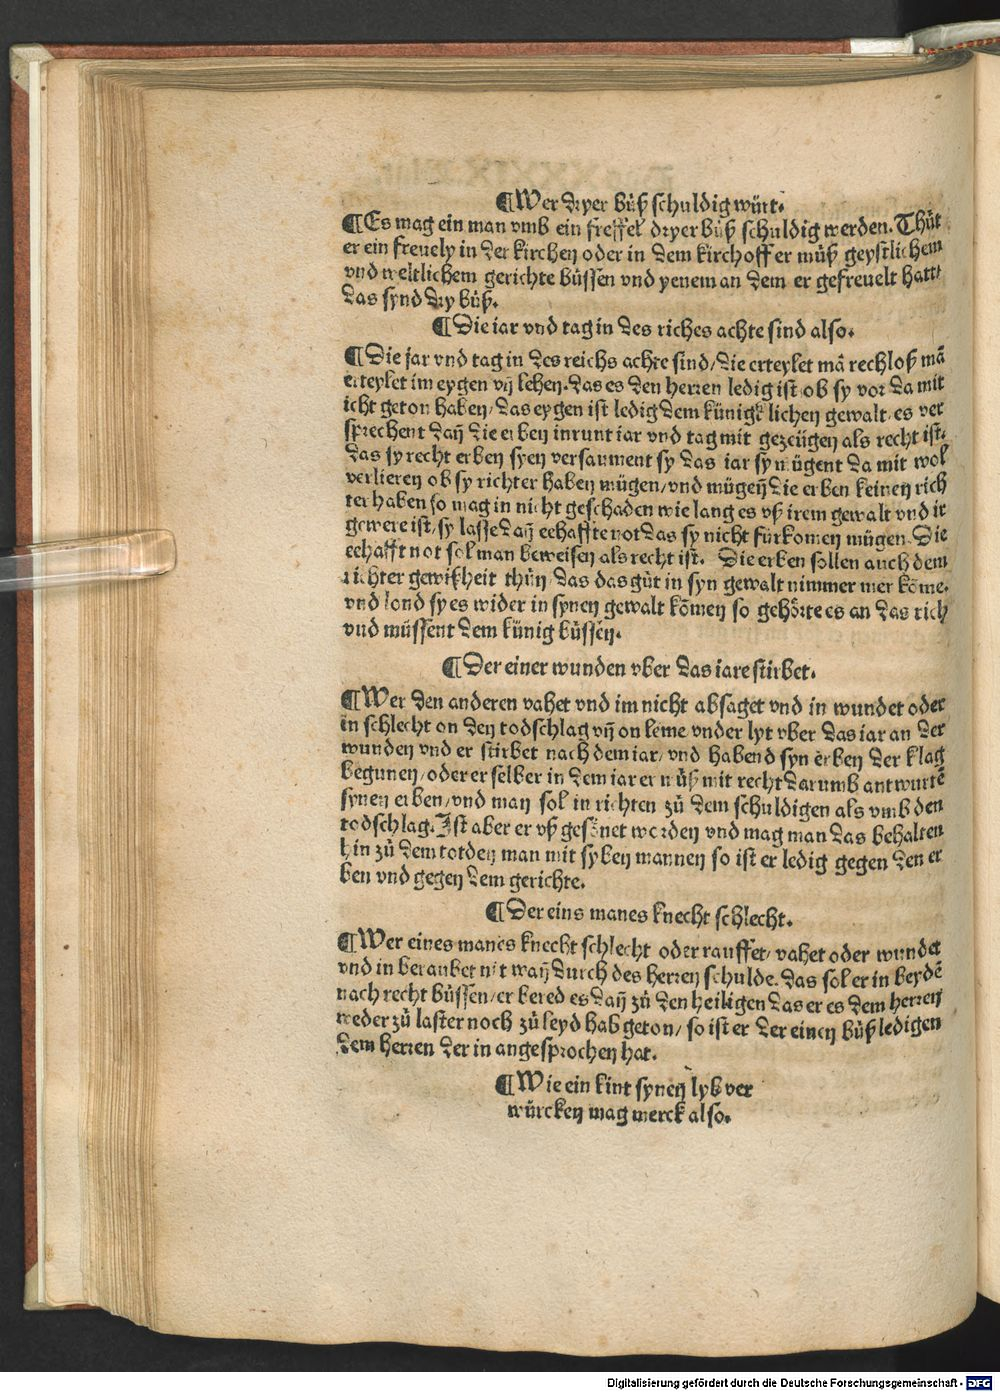 ¶Wer dryer bůß schuldig würt.
¶Es mag ein man vmb ein freffel dryer bůß schuldig werden. Thůt
er ein freuely in der kirchen oder in dem kirchoff er můß geystlichem
vnd weltlichem gerichte büssen vnd yenem an dem er gefreuelt hatt
das synd dry bůß.
¶Die iar vnd tag in des riches achte sind also.
¶Die jar vnd tag in des reichs achte sind/die erteylet mā rechloß mā
erteylet im eygen vn̄ lehen. das es den herren ledig ist ob sy vor da mit
icht geton haben/das eygen ist ledig dem künigklichen gewalt es ver
sprechent dan̄ die erben inrunt iar vnd tag mit gezeügen als recht ist.
das sy recht erben syen versaument sy das iar sy mügent da mit wol
verlieren ob sy richter haben mügen/vnd mügen̄ die erben keinen rich
ter haben so mag in nicht geschaden wie lang es vß irem gewalt vnd ir
gewere ist/sy lasse dan̄ eehaffte not das sy nicht fürkomen mügen. Die
eehafft not sol man beweisen als recht ist. Die erben sollen auch dem
richter gewißheit thůn das das gůt in syn gewalt nimmer mer kōme.
vnd lond sy es wider in synen gewalt kōmen so gehörte es an das rich
vnd müssent dem künig büssen.
¶Der einer wunden vber das iare stirbet.
¶Wer den anderen vahet vnd im nicht absaget vnd in wundet oder
in schlecht on den todschlag vn̄ on leme vnder lyt vber das iar an der
wunden vnd er stirbet nach dem iar/vnd habend syn erben der klag
begunen/oder er selber in dem iar er můß mit recht darumb antwurtē
synen erben/vnd man sol in richten zů dem schuldigen als vmb den
todschlag. Ist aber er vß gesönet worden vnd mag man das behalten
hin zů dem totden man mit syben mannen so ist er ledig gegen den er
ben vnd gegen dem gerichte.
¶Der eins manes knecht schlecht.
¶Wer eines manes knecht schlecht oder rauffet/vahet oder wundet
vnd in beraubet nit wan̄ durch des herren schulde. das sol er in beydē
nach recht büssen/er bered es dan̄ zů den heiligen das er es dem herren
weder zů laster noch zů leyd hab geton/so ist er der einen bůß ledigen
dem herren der in angesprochen hat.
¶Wie ein kint synen lyb ver
würcken mag merck also.
Digitalisierung gefördert durch die Deutsche Forschungsgemeinschaft - DFG